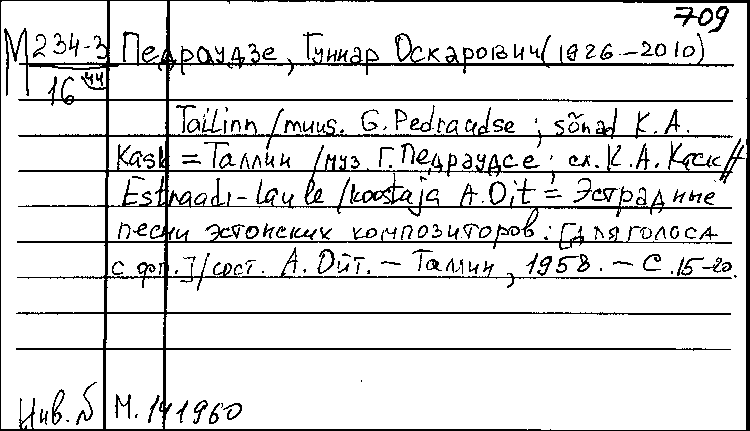 709
М 234-3 Педраудзе, Гуннар Оскарович (1926-2010)
16 чч
Tallinn / muus. G. Pedraudse ; sõnad K. A.
Kask = Таллин / муз. Г. Педраудсе ; сл. К. А. Каск //
Estraadi-laule / koostaja A. Oit = Эстрадные
песни эстонских композиторов : [для голоса
с фп.] / сост. А. Ойт. — Таллин, 1958. — С. 15-20.
Инв. № М. 141960